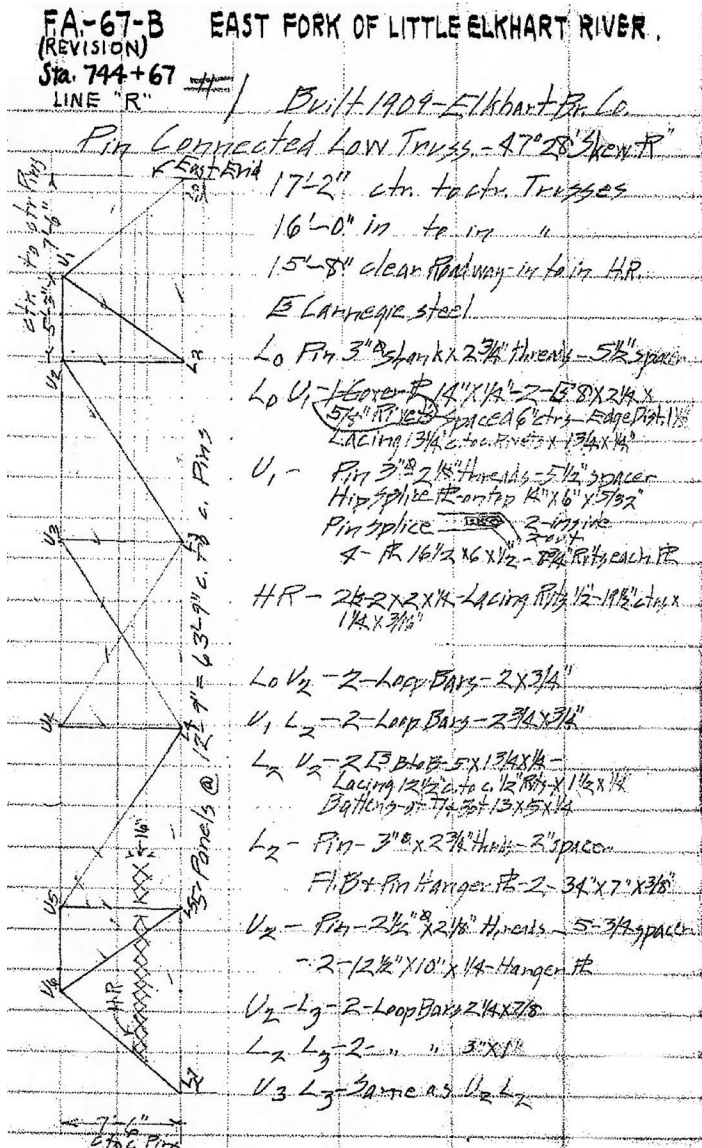 F.A.-67-B EAST FORK OF LITTLE ELKHART RIVER.
(REVISION)
Sta. 744+67
LINE "R"
Built 1909-Elkhart Br. Co.
Pin Connected Low Truss - 47°28' Skew R"
East End
17'-2" ctr. to ctr. Trusses
16'-0" in to in "
15'-8" clear Roadway-in to in H.R.
Carnegie steel
L0 Pin 3"ø shank x 2¾" threads - 5½" spacer
L0 U1 - 1-Cover ⅊ 14"x¼" - 2-[s 8x2¼x
5/8" Rivets Spaced 6"ctrs - Edge Dist. 1½"
Lacing 13¼ c. to c. Rivets x 1¾ x ¼"
U1 - Pin 3"ø 2⅛" threads - 5½" spacer
Hip Splice ⅊ - on top 14"x6"x5/32"
Pin splice 2-inside
2-out
4- ⅊ 16½ x 6 x ½ - 8-¾" Rvts each ⅊
HR - 2[s-2x2x¼-Lacing Rvts ½-19½"ctrs x
1¼ x 3/16"
L0 U2 - 2-Loop Bars - 2x3/4"
U1 L2 - 2-Loop Bars - 2¾x¾"
L2 U2 - 2 [s B to B-5x1¾x¼-
Lacing 12½" c. to c. ½" Rvts x 1½ x ¼
Battens-at 13x5x¼
L2 - Pin - 3"ø x 2¾" thrds - 2" spacer
Fl. B & Pin Hanger ⅊ - 2- 34"x7"x3/8"
U2 - Pin - 2½"ø x 2⅛" threads - 5-3/4 spacer
- 2-12½"x10"x¼-Hanger ⅊
U2 - L3 - 2-Loop Bars 2¼x7/8
L2 L3 - 2- " " 3"x1"
U3 L3 - Same as U2 L2
ctr to ctr Pins
5'-3" x 7'-6"
5-Panels @ 12'-9" = 63'-9" c. to c. Pins
L0
U1
U2
L2
U3
L3
U4
L4
16"
U5
L5
U6
H.R.
L7
7'-6"
c to c Pins